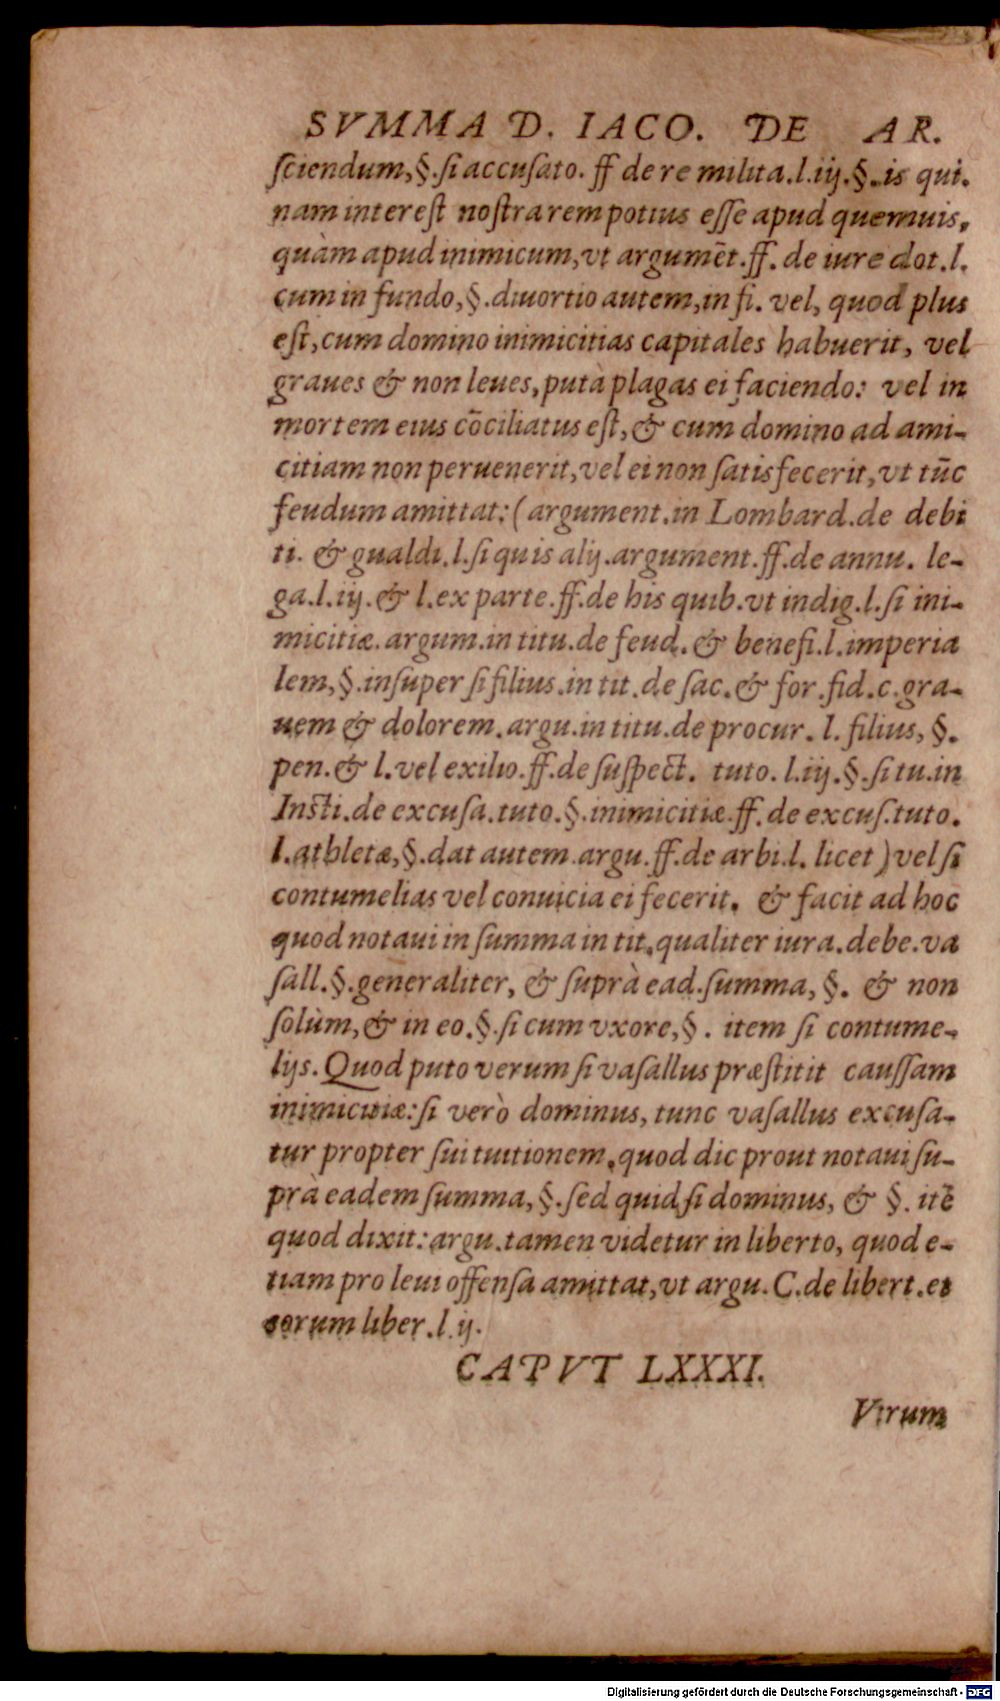 SVMMA D. IACO. DE AR.
ſciendum,§.ſi accuſato. ff de re milita.l.iij.§.is qui.
nam intereſt noſtra rem potius eſſe apud quemuis,
quàm apud inimicum,vt argumẽt.ff. de iure dot.l.
cum in fundo,§.diuortio autem,in fi. vel, quod plus
eſt,cum domino inimicitias capitales habuerit, vel
graues & non leues,putà plagas ei faciendo: vel in
mortem eius cõciliatus eſt,& cum domino ad ami-
citiam non peruenerit,vel ei non ſatisfecerit,vt tũc
feudum amittat:(argument.in Lombard.de debi
ti. & gualdi.l.ſi quis alij.argument.ff.de annu. le-
ga.l.iij.& l.ex parte.ff.de his quib.vt indig.l.ſi ini-
micitiæ.argum.in titu.de feud.& benefi.l.imperia
lem,§.inſuper ſi filius.in tit.de ſac.& for.fid.c.gra-
uem & dolorem.argu.in titu.de procur. l. filius, §.
pen.& l.vel exilio.ff.de ſuſpect. tuto. l.iij.§.ſi tu.in
Inſti.de excuſa.tuto.§.inimicitiæ.ff.de excuſ.tuto.
l.athletæ,§.dat autem.argu.ff.de arbi.l. licet)vel ſi
contumelias vel conuicia ei fecerit. & facit ad hoc
quod notaui in ſumma in tit.qualiter iura.debe.va
ſall.§.generaliter, & ſuprà ead.ſumma, §. & non
ſolùm,& in eo.§.ſi cum vxore,§. item ſi contume-
lijs.Quod puto verum ſi vaſallus præſtitit cauſſam
inimicitiæ:ſi verò dominus, tunc vaſallus excuſa-
tur propter ſui tuitionem,quod dic prout notaui ſu-
prà eadem ſumma,§.ſed quid ſi dominus, & §. itẽ
quod dixit:argu.tamen videtur in liberto, quod e-
tiam pro leui offenſa amittat,vt argu.C.de libert.et
eorum liber.l.ij.
CAPVT LXXXI.
Vtrum
Digitalisierung gefördert durch die Deutsche Forschungsgemeinschaft - DFG